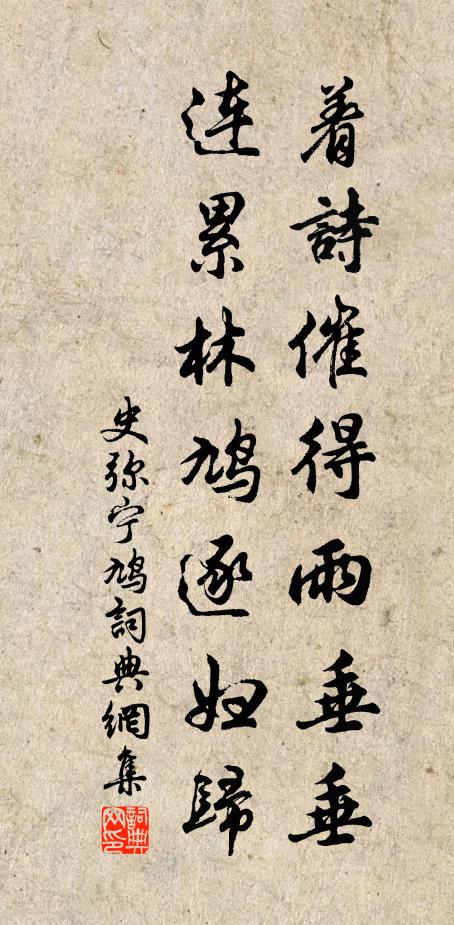 着詩催得雨垂垂
連累林鳩逐婦歸
史弥宁鳩詞典網集
詞典網印